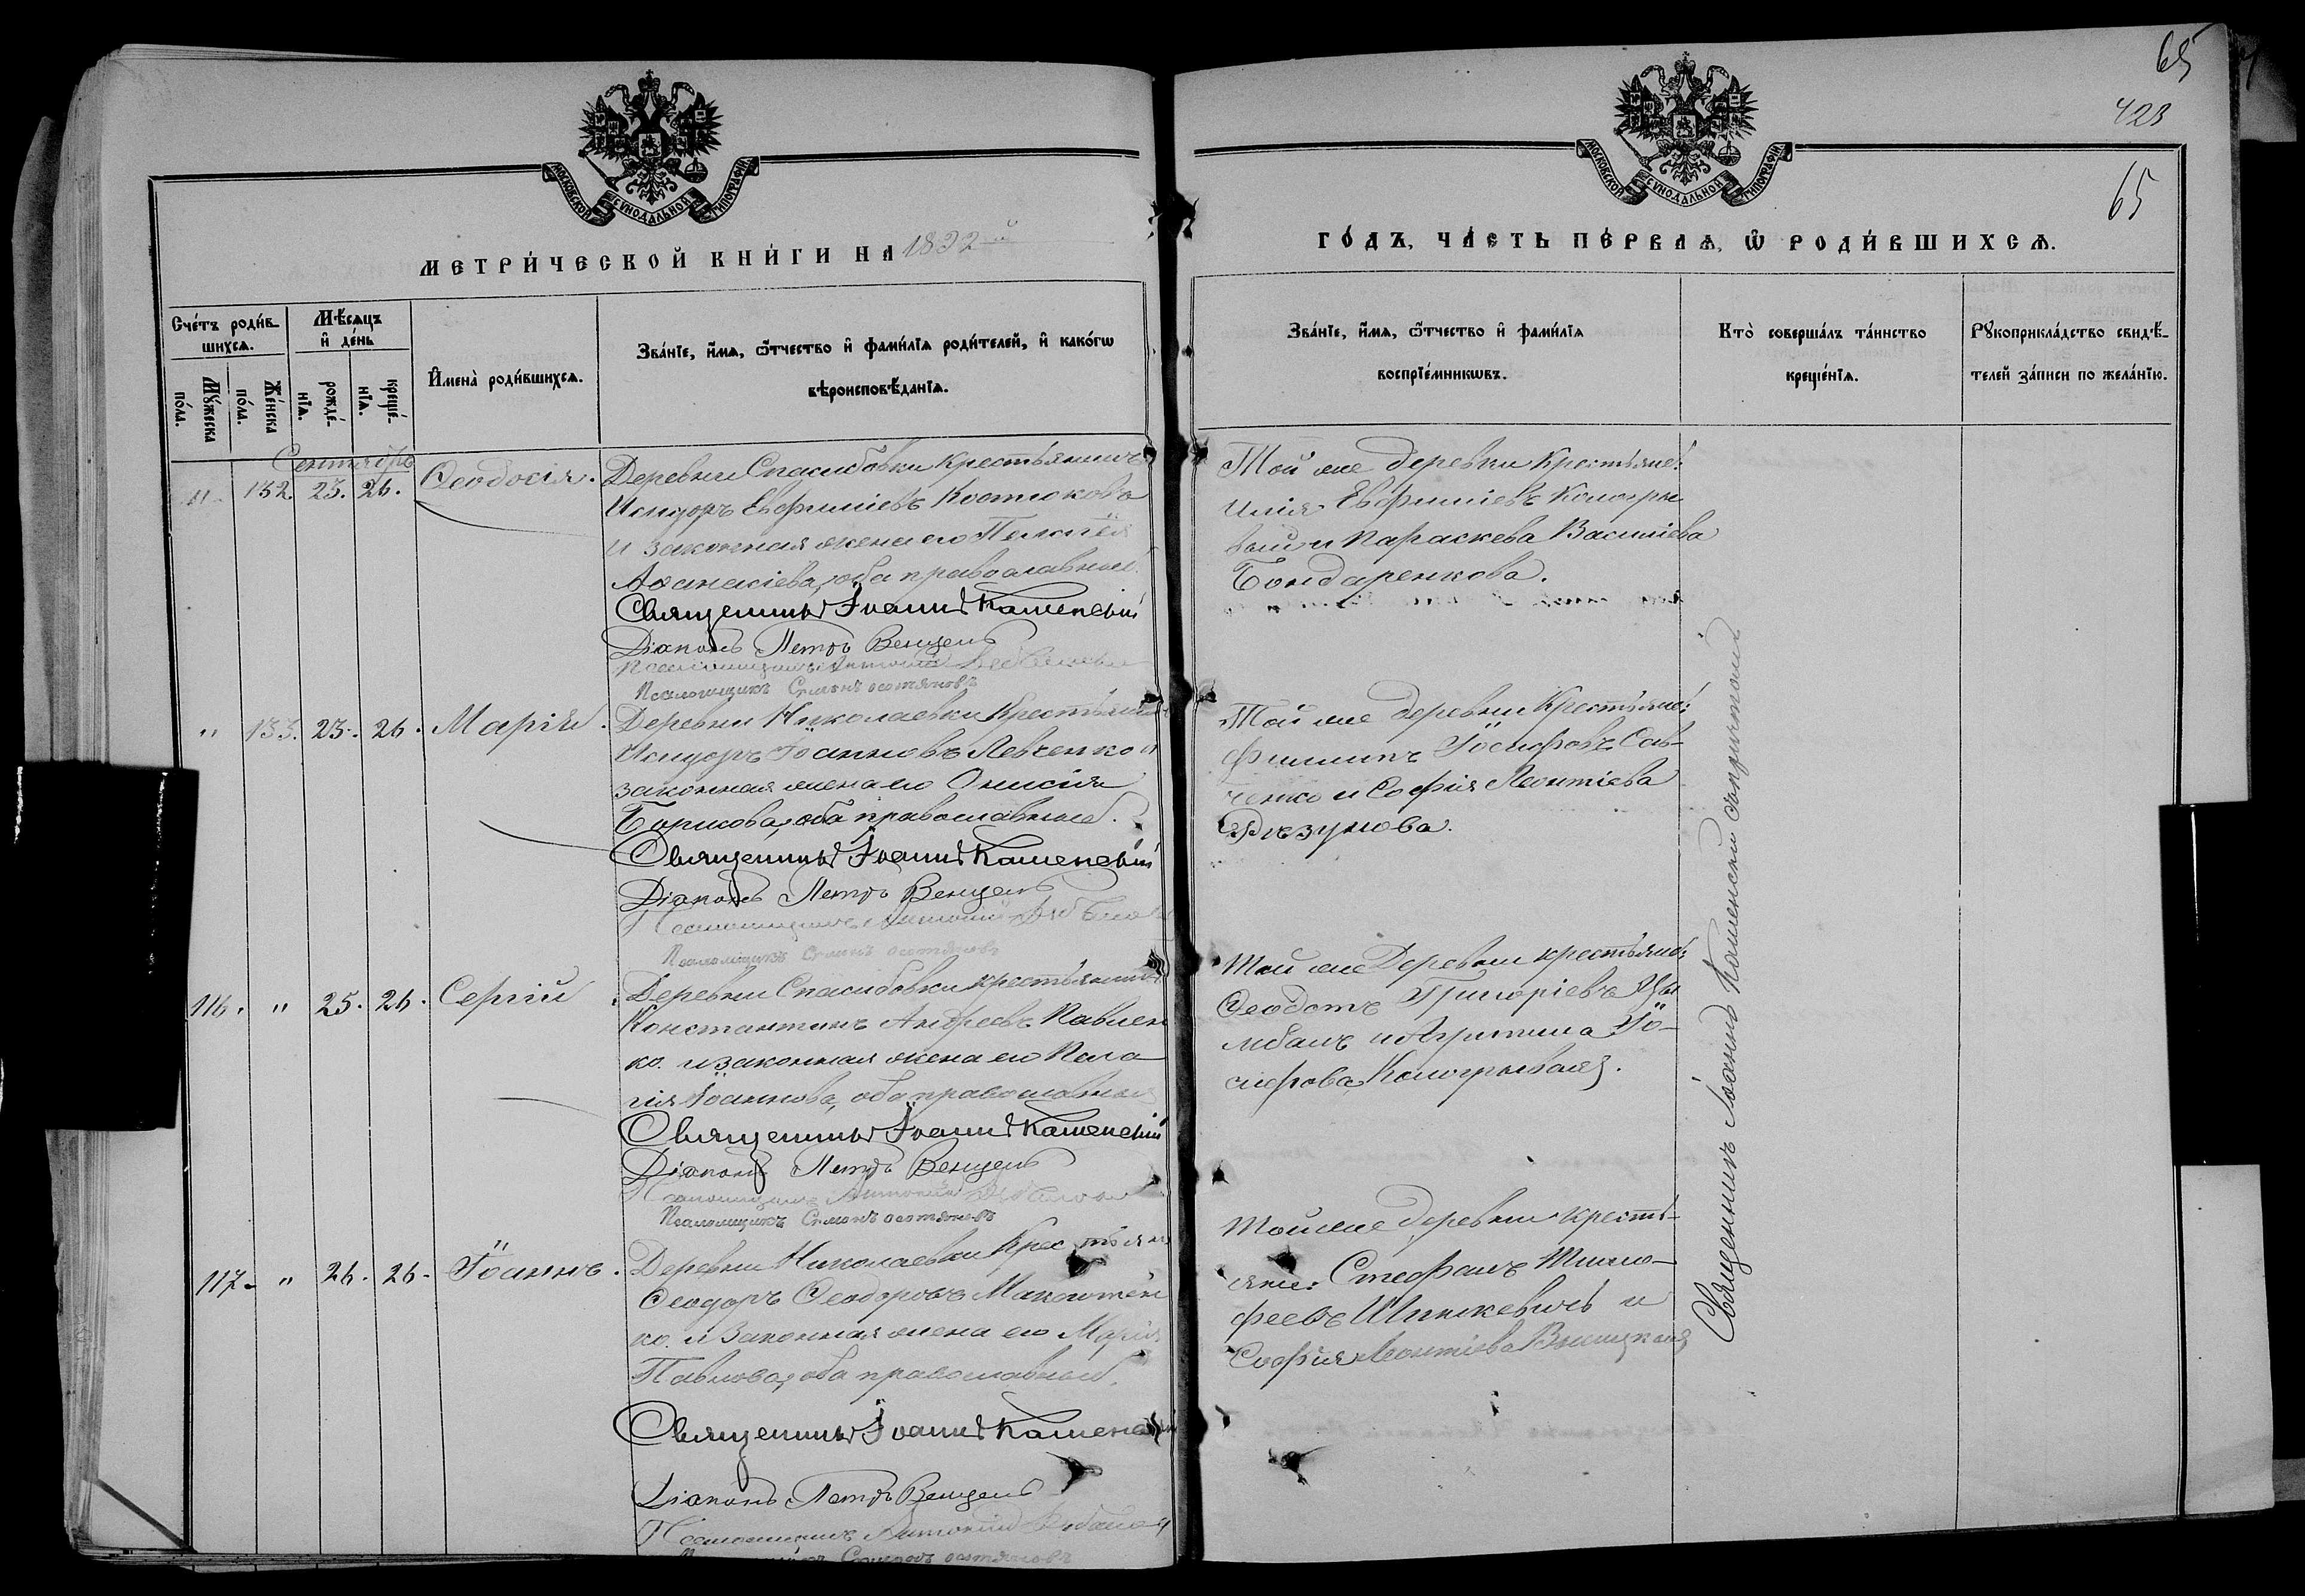 65
423
65
МОСКОВСКОЙ СУНОДАЛЬНОЙ ТИПОГРАФІИ
МЕТРИ́ЧЕСКОЙ КНИ́ГИ НА 1892 й
Сче́тъ роди́в-
шихсѧ.
Мѣ́сѧцъ
и҆ де́нь
Мꙋ́жеска
по́ла.
Же́нска
по́ла.
рожде́-
нїѧ.
креще́-
нїѧ.
И҆мена̀ роди́вшихсѧ.
Зва́нїе, и҆́мѧ, ѻ҆́тчество и҆ фами́лїѧ роди́телей, и҆ како́гѡ
вѣроисповѣ́данїѧ.
Сентябрь
" 132. 23. 26. Ѳеодосія.
Деревни Спасибовки крестьянинъ
Исидоръ Евфиміевъ Костюкова
и законная жена его Пелагея
Аѳанасіева, оба православные.
Священникъ Іоаннъ Каменскій
Діаконъ Петръ Венцель
Псаломщикъ Антоній
Псаломщикъ Симонъ
" 133. 23. 26. Марія.
Деревни Николаевки крестьянинъ
Исидоръ Іоанновъ Левченко и
законная жена его Онисія
Борисова, оба православные.
Священникъ Іоаннъ Каменскій
Діаконъ Петръ Венцель
Псаломщикъ Антоній
Псаломщикъ Симонъ
116. " 25. 26. Сергій
Деревни Спасибовки крестьянинъ
Константинъ Андреевъ Павлен
ко. и законная жена его Пела
гія Іоаннова, оба православные
Священникъ Іоаннъ Каменскій
Діаконъ Петръ Венцель
Псаломщикъ Антоній
Псаломщикъ Симонъ
117. " 26. 26. Іоаннъ.
Деревни Николаевки крестьянин
Ѳеодоръ Ѳеодоровъ
ко. и законная жена его Марія
Павлова, оба православные.
Священникъ Іоаннъ Каменскій
Діаконъ Петръ Венцель
Псаломщикъ Антоній
Симонъ
МОСКОВСКОЙ СУНОДАЛЬНОЙ ТИПОГРАФІИ
ГО́ДЪ, ЧА́СТЬ ПЕ́РВАѦ, Ѡ҆ РОДИ́ВШИХСѦ.
Зва́нїе, и҆́мѧ, ѻ҆́тчество и҆ фами́лїѧ
воспрїе́мникѡвъ.
Кто̀ соверша́лъ та́инство
креще́нїѧ.
Рꙋкоприкла́дство свидѣ́-
телей за́писи по жела́нїю.
Той же деревни крестьяне:
Илія Евфиміевъ Кологры
вый и Параскева Василіева
Бондаренкова.
Той же деревни крестьяне:
Филиппъ Іосифовъ Сав-
ченко и Софія Леонтіева
Рѣзунова.
Той же Деревни крестьяне:
Ѳеодотъ Григоріевъ Цы
мбалъ и Агрипина Іо-
сифова Кологрывая.
Той же деревни кресть-
яне: Стефанъ Тимо-
феевъ Шинкевичъ и
Софія Леонтіева
Священникъ Іоаннъ Каменскій